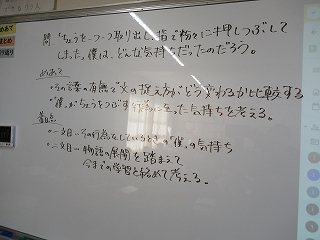 問 「ちょうを一つ一つ取り出し、指で粉々に押しつぶして
しまった。」僕は、どんな気持ちだったのだろう。
めあて
・その言葉の有無で文の捉え方がどうかわるか比較する
・「僕」がちょうをつぶす に至った気持ちを考える。
着目点
・一文目→その行為をしているときの「僕」の気持ち
・二文目→物語の展開を踏まえて
今までの学習と絡めて考える。